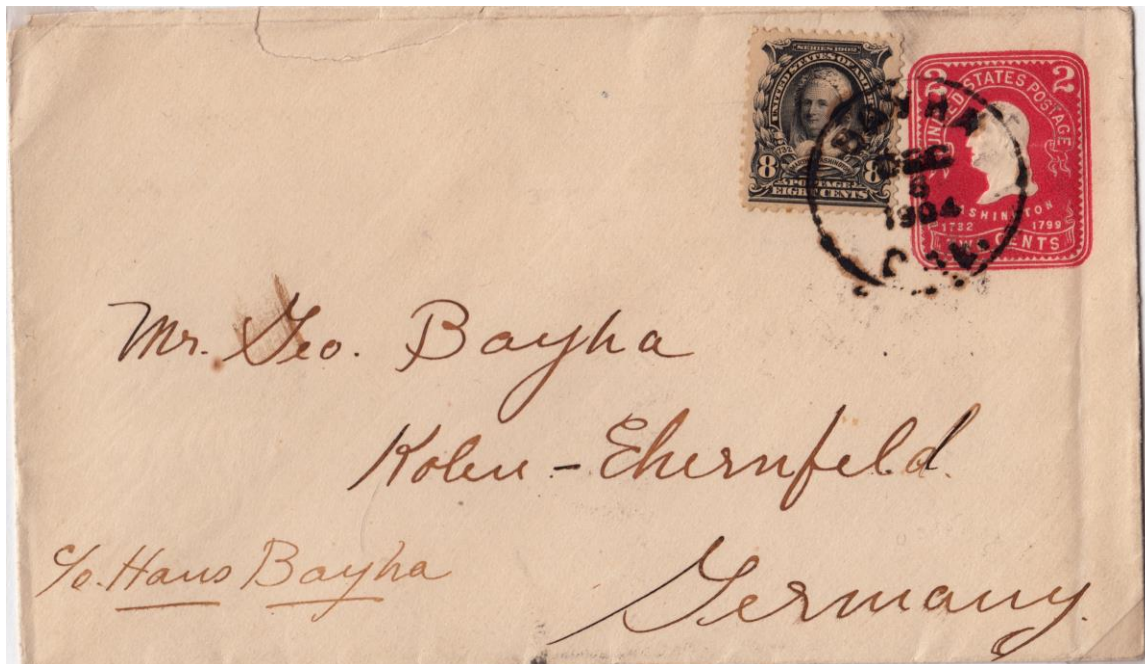 SERIES 1902
UNITED STATES OF AMERICA
8 8
POSTAGE
EIGHT CENTS
2 2
UNITED STATES POSTAGE
WASHINGTON
1732 1799
TWO CENTS
BAYHA
DEC
1904
CAL.
Mr. Geo. Bayha
Kolen - Ehernfeld.
c/o. Hans Bayha
Germany.